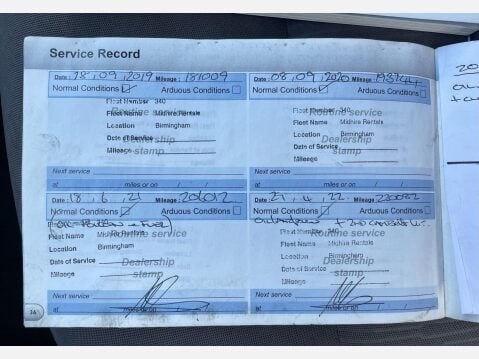 Service Record
Date: 28, 09, 2019 Mileage: 181009
Normal Conditions Arduous Conditions
Fleet Number 340
Routine service
Fleet Name Midhire Rentals
Location Birmingham
Date of Service
Dealership
Mileage
stamp
Next service
at miles or on / /
Date: 08, 09, 2020 Mileage:
Normal Conditions Arduous Conditions
Fleet Number 340
Routine service
Fleet Name Midhire Rentals
Location Birmingham
Date of Service
Dealership
Mileage
stamp
Next service
at miles or on / /
Date: 18, 6, 21 Mileage:
Normal Conditions Arduous Conditions
Fleet Name Midhire Rentals
Routine service
Location Birmingham
Date of Service
Dealership
Mileage
stamp
Next service
at miles or on
Date: 21, 4, 22 Mileage:
Normal Conditions Arduous Conditions
Fleet Number 340
Routine service
Fleet Name Midhire Rentals
Location Birmingham
Date of Service
Dealership
Mileage
stamp
Next service
at miles or on
36
20